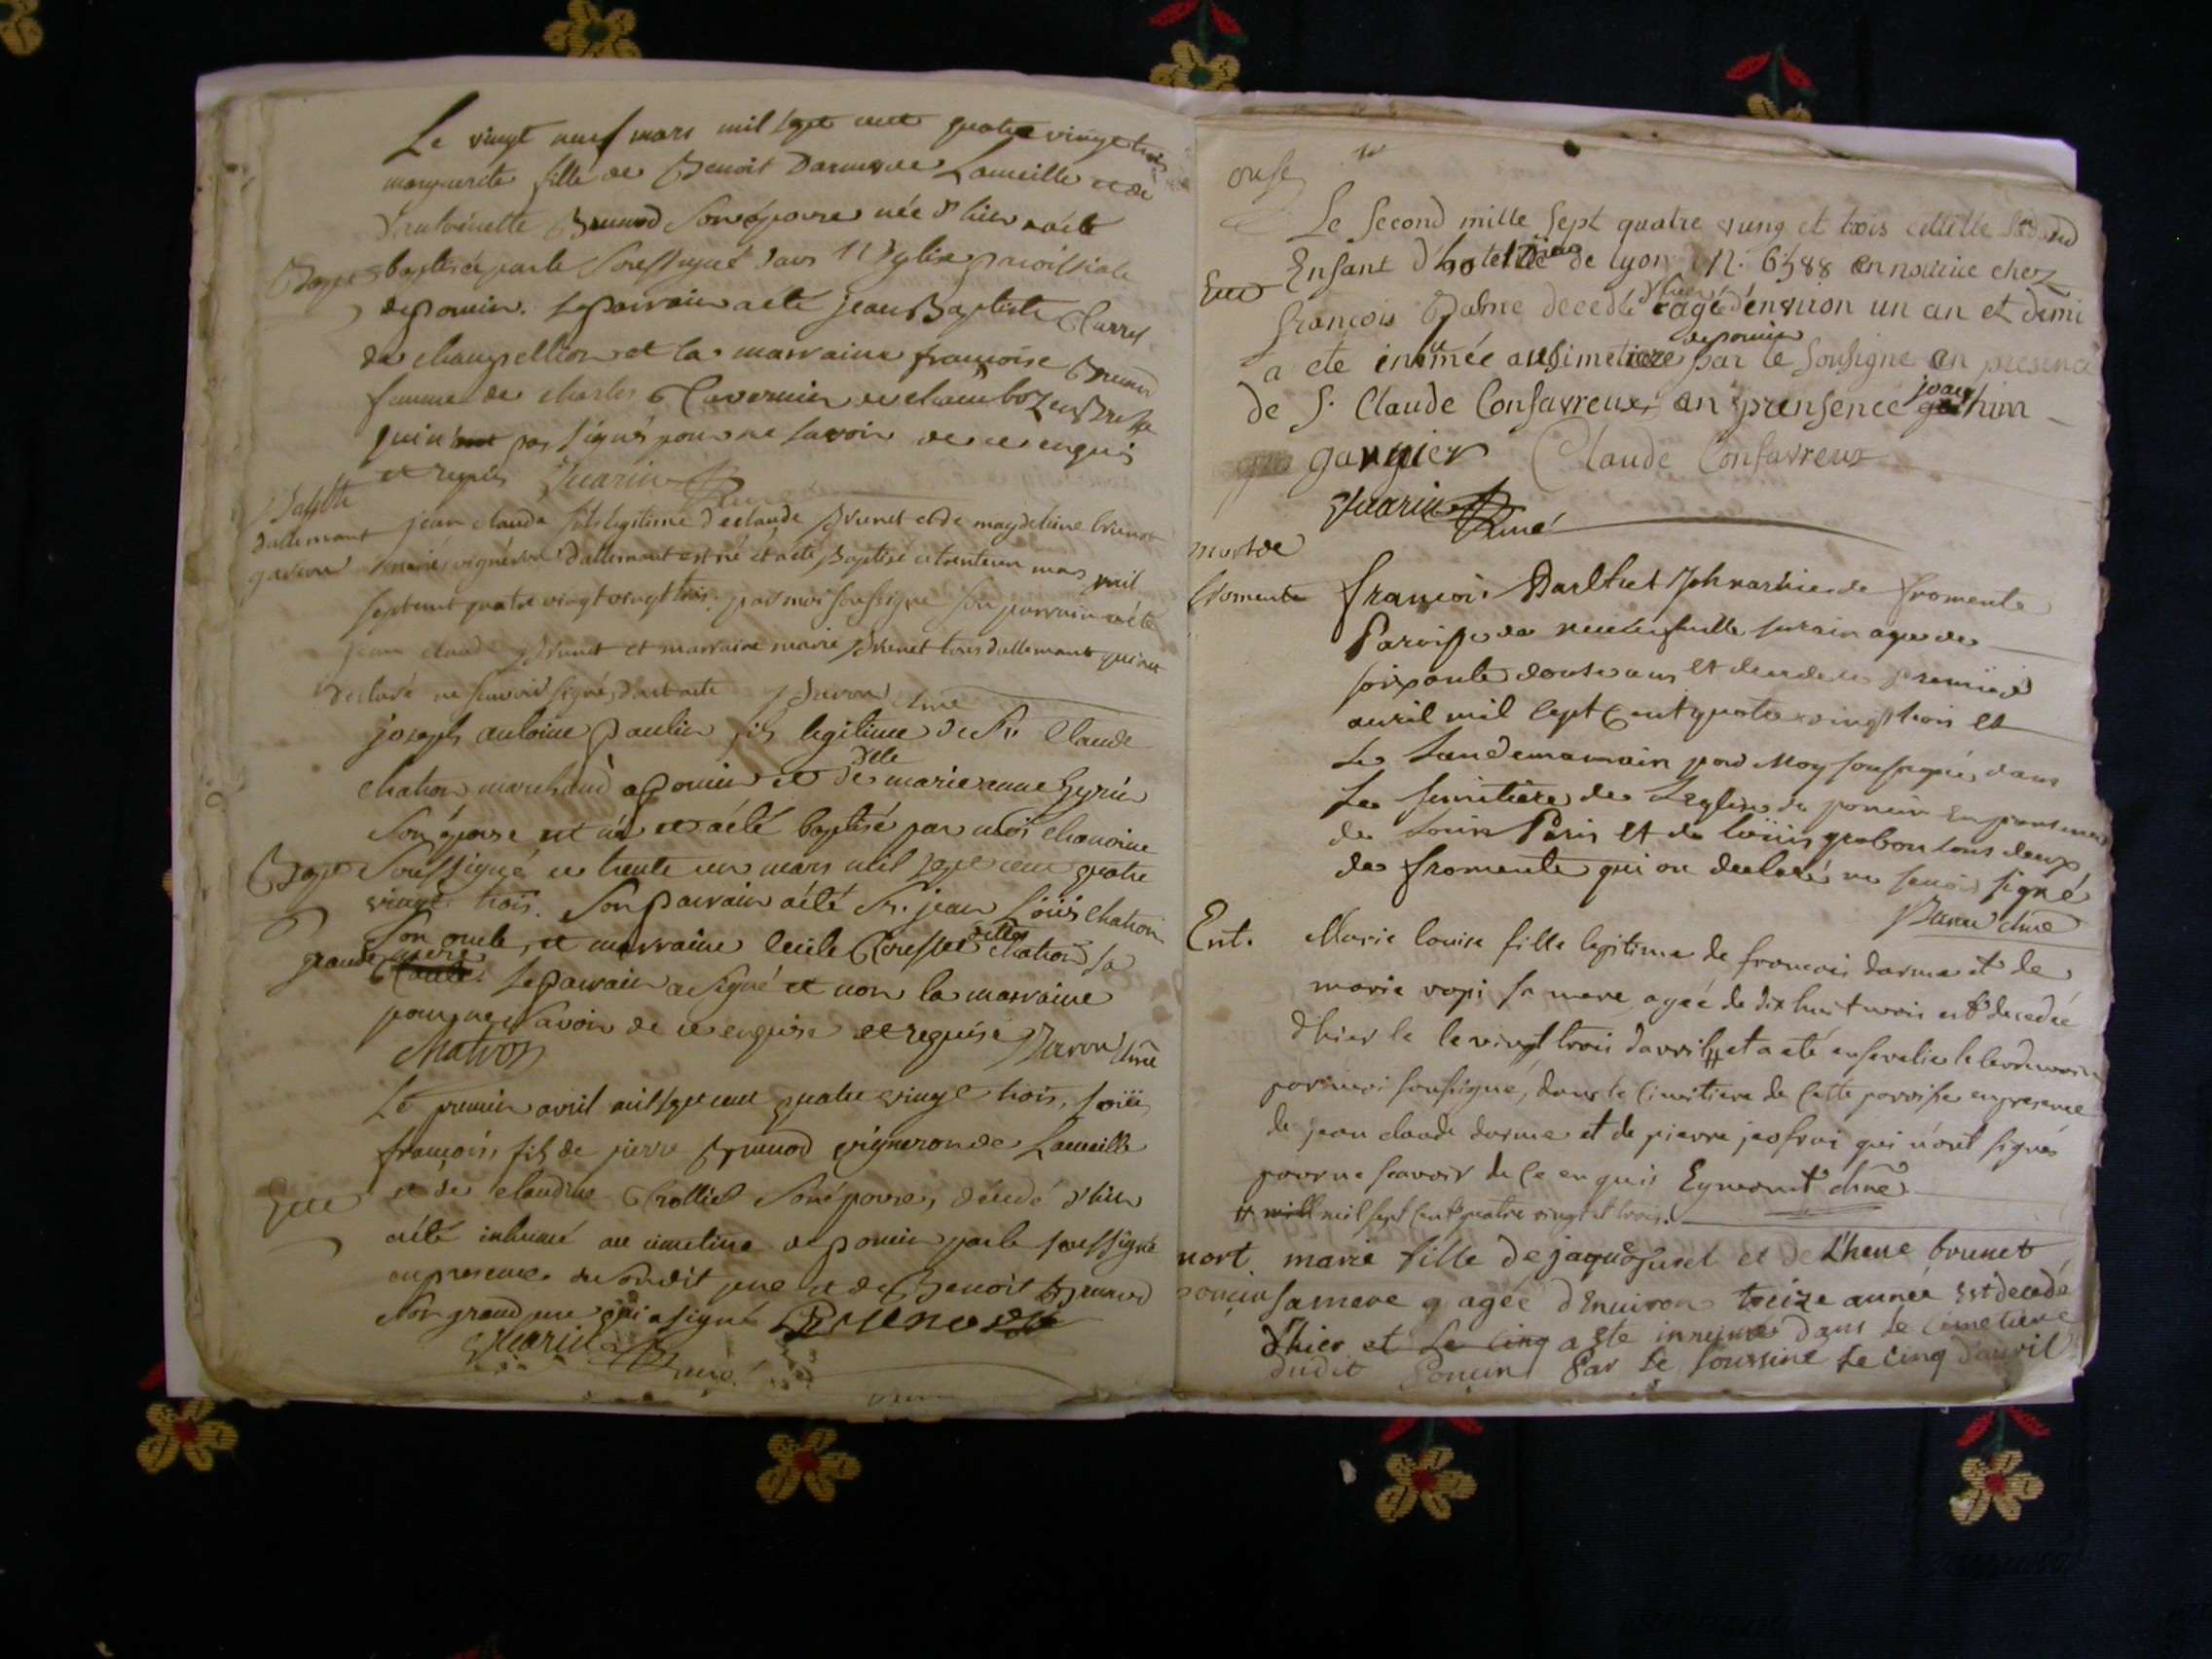 Le vingt neuf mars mil sept cent quatre vingt trois
marguerite fille de Benoit Darme de Lameille et de
antoinette Brunod son épouse née d'hier a été
Bap baptisée par le soussigné dans l'Eglise paroissiale
de poncin. le parrain a été jean Baptiste
de et la marraine françoise Brunod
femme de charles
qui n'ont pas signés pour ne savoir de ce enquis
et requis Guarin Curé
Bapt
dallemant jean claude fils legitime de claude Brunet et de magdeleine
mariés vignéron dallemant est né et a été Baptisé ce trente un mars mil
sept cent quatre vingt vingt trois, par moi soussigné son parrain a été
jean claude Brunet et marraine marie Brunet tous dallemant qui ont
declaré ne scavoir signé, dont acte
joseph antoine paulin fils legitime de Sr. Claude
Chatron marchand a poncin et de dlle marie anne
son épouse est né et a été baptisé par moi chanoine
Bap soussigné ce trente un mars mil sept cent quatre
vingt trois. Son parrain a été Sr. jean Loüis Chatron
son oncle, et marraine Chatron sa
grande mere. le parrain a signé et non la marraine
pour ne savoir de ce enquise et requise chne
Chatron
Le premier avril mil sept cent quatre vingt trois, Loüis
françois fils de pierre Brunod vigneron de Lameille
Ent et de claudine son épouse, décédé d'hier
a été inhumé au cimetiere de poncin par le soussigné
en presence du susdit pere et de Benoit Brunod
son grand pere qui a signé Brunod
Guarin Curé

onse
Le second mille sept quatre vung et trois
Ent Enfant d'hotel Dieu de lyon N. 6588 en nourice chez
françois Darme decedé d'hier agé d'environ un an et demi
a ete inhumée au simetiere de poncin par le sousigne en presence
de S. Claude Confavreux, en prensence joachim
gangier Claude Confavreux
Guarin Curé
mort de
fromente françois de fromente
Paroisse de age de
soixante douse ans et decede le premier
avril mil sept Cent quatre vingt trois et
Le Landemamain par Moy sousigné, dans
Le simitiere de Leglise de poncin En presence
de Louis Péris et de loüis tous deux
de fromente qui on declaré ne savoir signé
chne
Ent. Marie louise fille legitime de francois darme et de
marie sa mere agée de dix huit mois est decedée
d'hier le le vingt trois d'avril # et a eté ensevelie le lendemain
par moi soussigné, dans le Cimitiere de Cette paroisse en presence
de jean claude darme et de pierre qui n'ont signés
pour ne scavoir de Ce enquis Eymont chne
# mill mil sept cent quatre vingt et trois.
mort marie fille de jaque et de brunet
poncin sa mere agée d'Enuiron treize année Est decedé
d'hier et Le cinq a ete inhumé dans le cimetiere
dudit Poncin Par le soussiné Le cinq d'auril